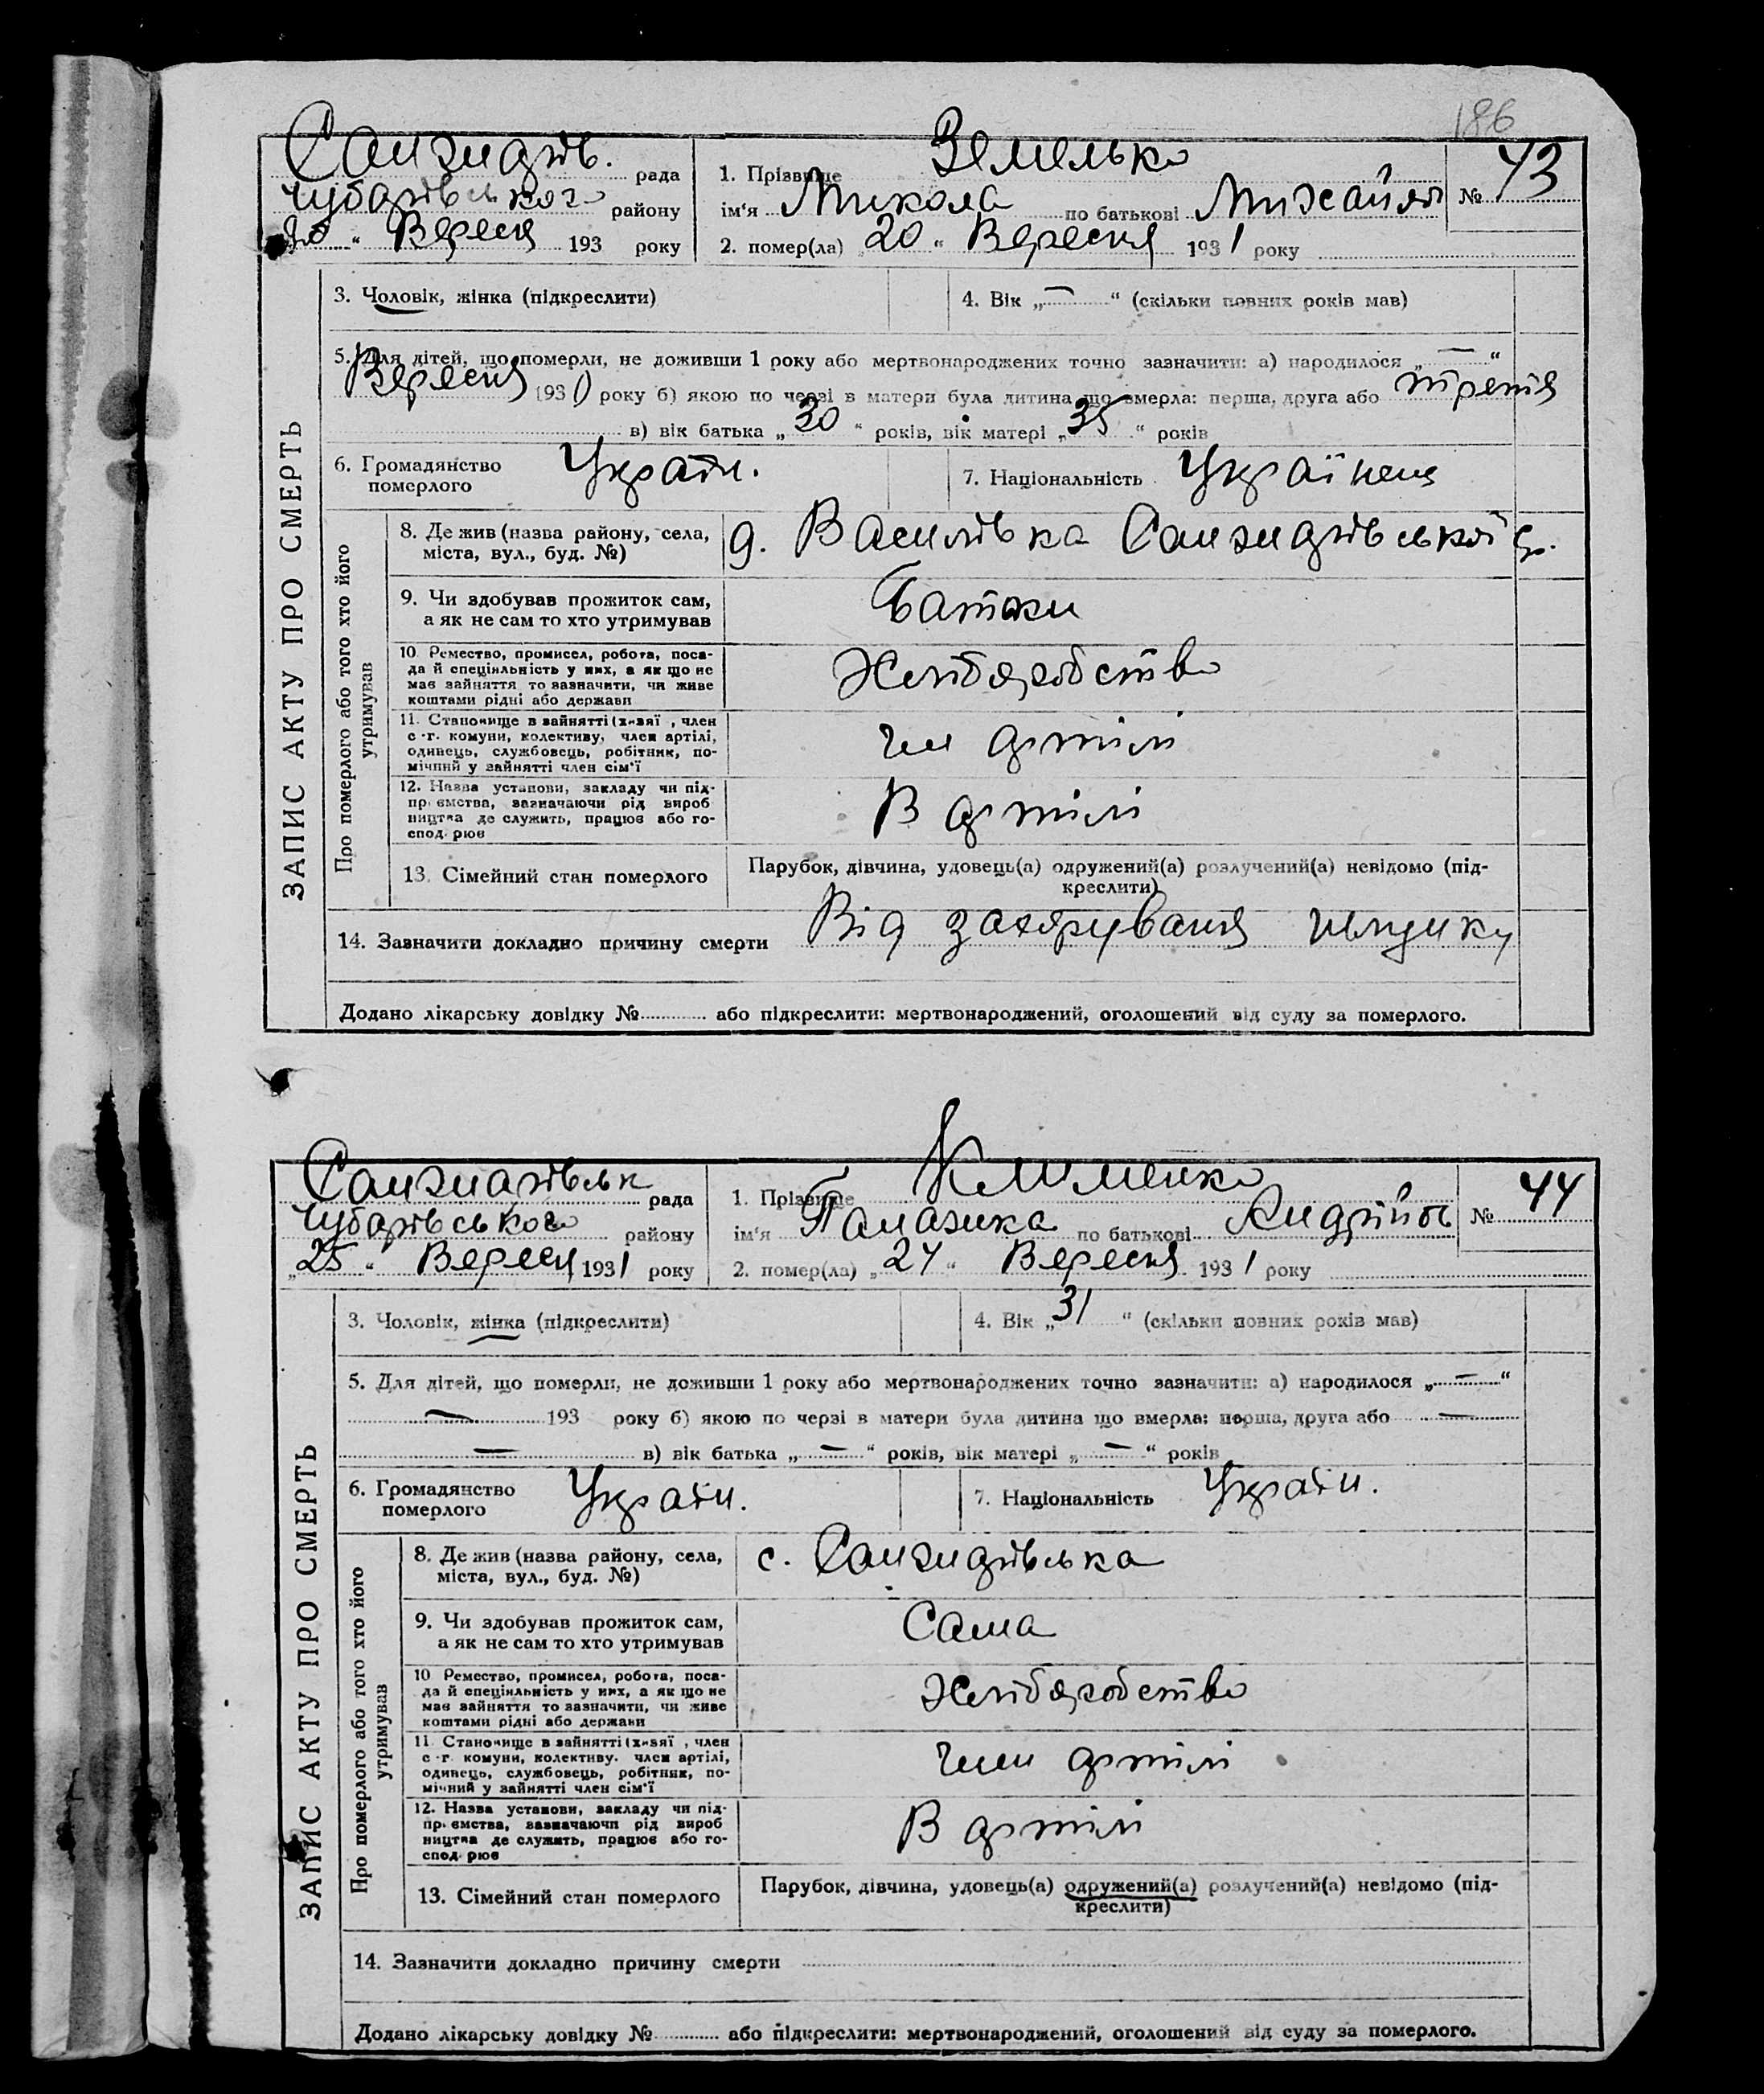 186
Санжарів. рада
Чубарівського району
20 " Вересня 193 року
1. Прізвище Земелько
ім'я Микола по батькові Михайлов
2. помер(ла) „20" Вересня 1931 року
№ 43
ЗАПИС АКТУ ПРО СМЕРТЬ
3. Чоловік, жінка (підкреслити)
4. Вік „—" (скільки повних років мав)
5. Для дітей, що померли, не доживши 1 року або мертвонароджених точно зазначити: а) народилося „—"
Вересня 1931 року б) якою по черзі в матери була дитина що вмерла: перша, друга або третя
в) вік батька „30" років, вік матері „35" років
6. Громадянство померлого Україн.
7. Національність Українец
Про померлого або того хто його утримував
8. Де жив (назва району, села,
міста, вул., буд. №)
д. Василівка Санжарівської
9. Чи здобував прожиток сам,
а як не сам то хто утримував
Батьки
10. Ремество, промисел, робота, поса-
да й спеціяльність у них, а як що не
має зайняття то зазначити, чи живе
коштами рідні або держави
Хліборобство
11. Становище в зайнятті (хазяї, член
с.-г. комуни, колективу, член артілі,
одинець, службовець, робітник, по-
мічний у зайнятті член сім'ї
чл артілі
12. Назва установи, закладу чи під-
приємства, зазначаючи рід вироб
ництва де служить, працює або го-
сподарює
В артілі
13. Сімейний стан померлого
Парубок, дівчина, удовець(а) одружений(а) розлучений(а) невідомо (під-
креслити)
14. Зазначити докладно причину смерти Від захорування шлунку
Додано лікарську довідку № або підкреслити: мертвонароджений, оголошений від суду за померлого.
Санжарівськ рада
Чубарівського району
„25" Вересн 1931 року
1. Прізвище Клименко
ім'я Палажка по батькові Андрійов
2. помер(ла) „24" Вересня 1931 року
№ 44
ЗАПИС АКТУ ПРО СМЕРТЬ
3. Чоловік, жінка (підкреслити)
4. Вік „31" (скільки повних років мав)
5. Для дітей, що померли, не доживши 1 року або мертвонароджених точно зазначити: а) народилося „—"
— 193 року б) якою по черзі в матери була дитина що вмерла: перша, друга або —
— в) вік батька „—" років, вік матері „—" років
6. Громадянство померлого Україн.
7. Національність Україн.
Про померлого або того хто його утримував
8. Де жив (назва району, села,
міста, вул., буд. №)
с. Санжарівська
9. Чи здобував прожиток сам,
а як не сам то хто утримував
Сама
10 Ремество, промисел, робота, поса-
да й спеціяльність у них, а як що не
має зайняття то зазначити, чи живе
коштами рідні або держави
Хліборобство
11. Становище в зайнятті (хазяї, член
с.-г. комуни, колективу. член артілі,
одинець, службовець, робітник, по-
мічний у зайнятті член сім'ї
член артілі
12. Назва установи, закладу чи під-
приємства, зазначаючи рід вироб
ництва де служить, працює або го-
сподарює
В артілі
13. Сімейний стан померлого
Парубок, дівчина, удовець(а) одружений(а) розлучений(а) невідомо (під-
креслити)
14. Зазначити докладно причину смерти
Додано лікарську довідку № або підкреслити: мертвонароджений, оголошений від суду за померлого.